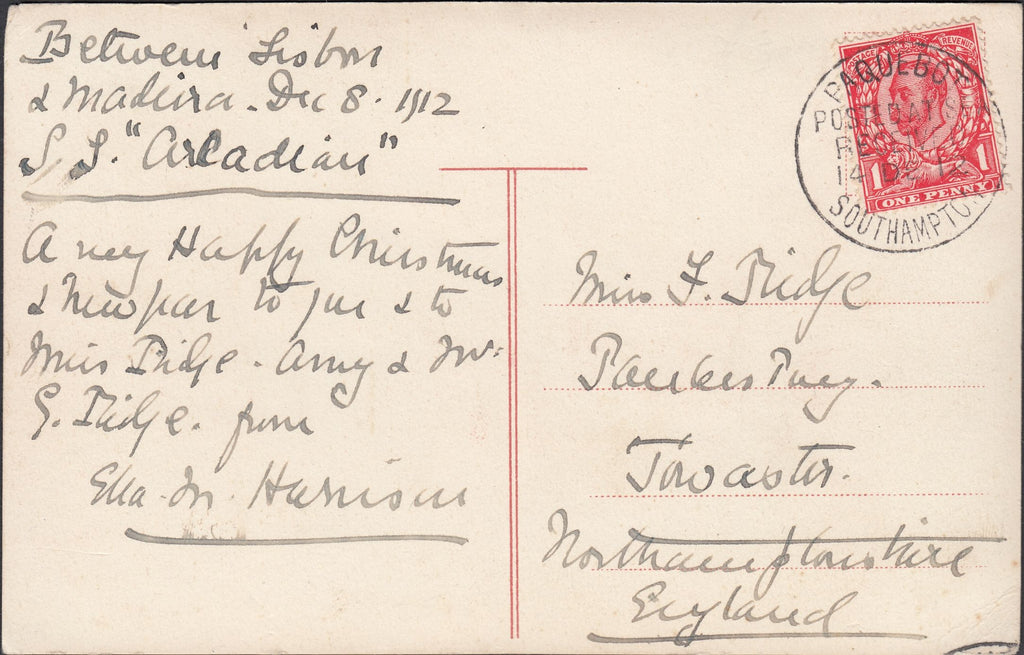 Between Lisbon
& Madeira - Dec 8. 1912
S. S. "Arcadian"
A very Happy Christmas
& New year to you & to
Miss Tidge. Amy & Mr.
G. Tidge. from
Ella. M. Harrison
PAQUEBOT
POSTED AT SEA
REC
14 DE 12
SOUTHAMPTON
POSTAGE REVENUE
1 1
ONE PENNY
Miss F. Tidge
Paulerspury.
Towcester.
Northamptonshire
England